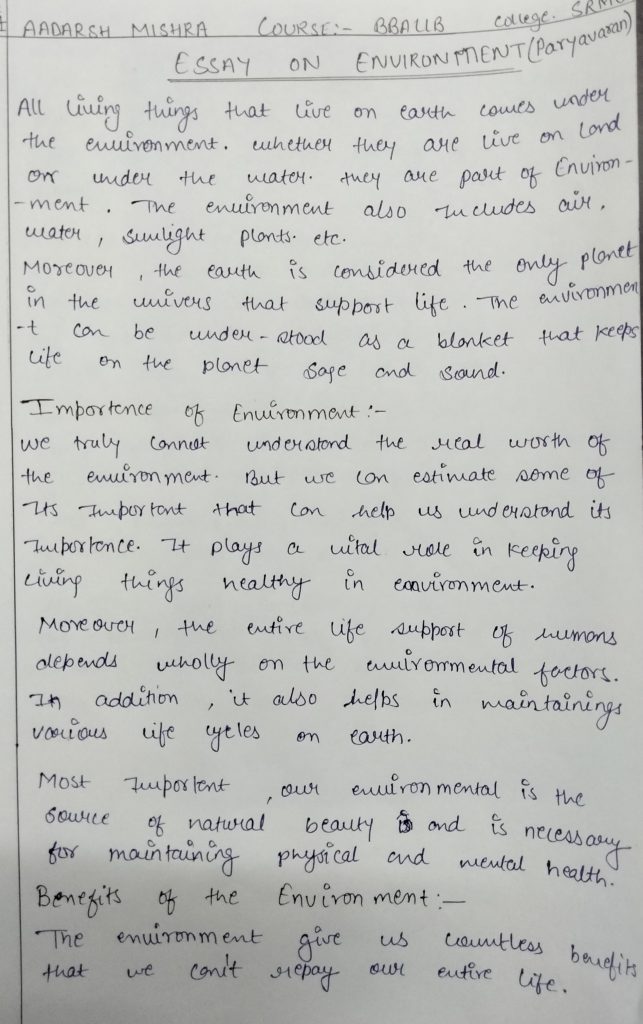 AADARSH MISHRA COURSE:- BBALLB College. SRMU
ESSAY ON ENVIRONMENT (Paryavaran)
All living things that live on earth comes under
the environment. whether they are live on Land
or under the water. they are part of Environ-
-ment. The environment also Includes air,
water, sunlight plants. etc.
Moreover, the earth is considered the only planet
in the univers that support life. The environmen
-t can be under-stood as a blanket that keeps
life on the planet sage and sound.
Importence of Environment:-
we truly cannot understand the real worth of
the environment. But we can estimate some of
Its Important that can help us understand its
Importence. It plays a vital role in keeping
living things healthy in environment.
Moreover, the entire life support of humans
depends wholly on the environmental factors.
In addition, it also helps in maintainings
various life cycles on earth.
Most Important, our environmental is the
source of natural beauty and is necessary
for maintaining physical and mental health.
Benefits of the Environment:-
The environment give us countless benefits
that we can't repay our entire life.